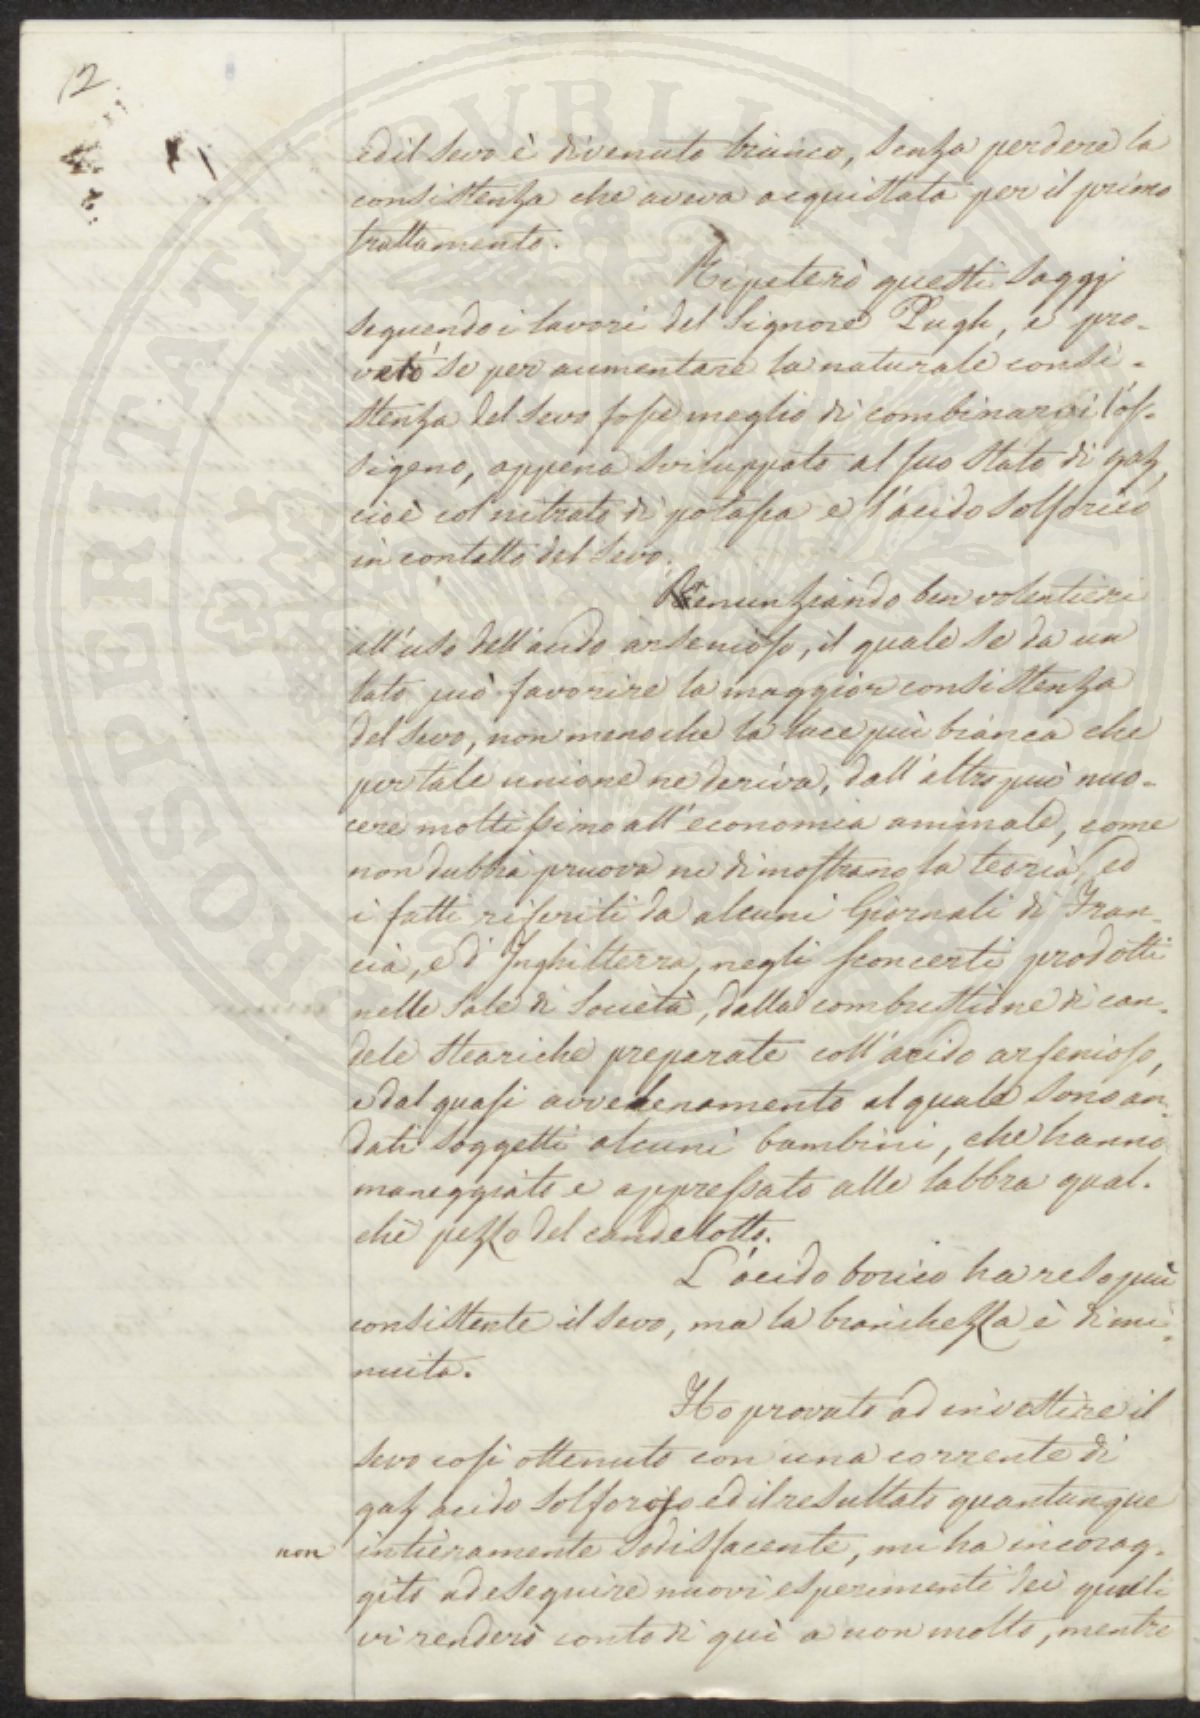 12
ed il sevo è divenuto bianco, senza perdere la
consistenza che aveva acquistata per il primo
trattamento.
Ripeterò questi saggj
seguendo i lavori del Signore Pugh, e pro-
verò se per aumentare la naturale consi-
stenza del sevo fosse meglio di combinarvi l'os-
sigeno, appena sviluppato al suo stato di gaz,
cioè col nitrato di potassa e l'ácido solforico
in contatto del sevo.
Renunziando ben volentieri
all'uso dell'acido arsenioso, il quale se da un
lato può favorire la maggior consistenza
del sevo, non meno che la luce più bianca che
per tale unione ne deriva, dall'altro può nuo-
cere moltissimo all'economia animale, come
non dubbia pruova ne dimostrano la teoria, ed
i fatti riferiti da alcuni Giornali di Fran-
cia, e d'Inghilterra, negli sconcerti prodotti
nelle Sale di Società, dalla combustione di can-
dele steariche preparate coll'acido arsenioso,
e dal quasi avvelenamento al quale sono an-
dati soggetti alcuni bambini, che hanno
maneggiato e appressato alle labbra qual-
che pezzo del candelotto.
L'ácido borico ha reso più
consistente il sevo, ma la bianchezza è dimi-
nuita.
Ho provato ad investire il
sevo così ottenuto con una corrente di
gaz acido solforoso ed il resultato quantunque
non intieramente sodisfacente, mi ha incorag-
gito ad eseguire nuovi esperimenti dei quali
vi renderò conto di quì a non molto, mentre
PROSPERITATI PVBLICAE AVGENDAE